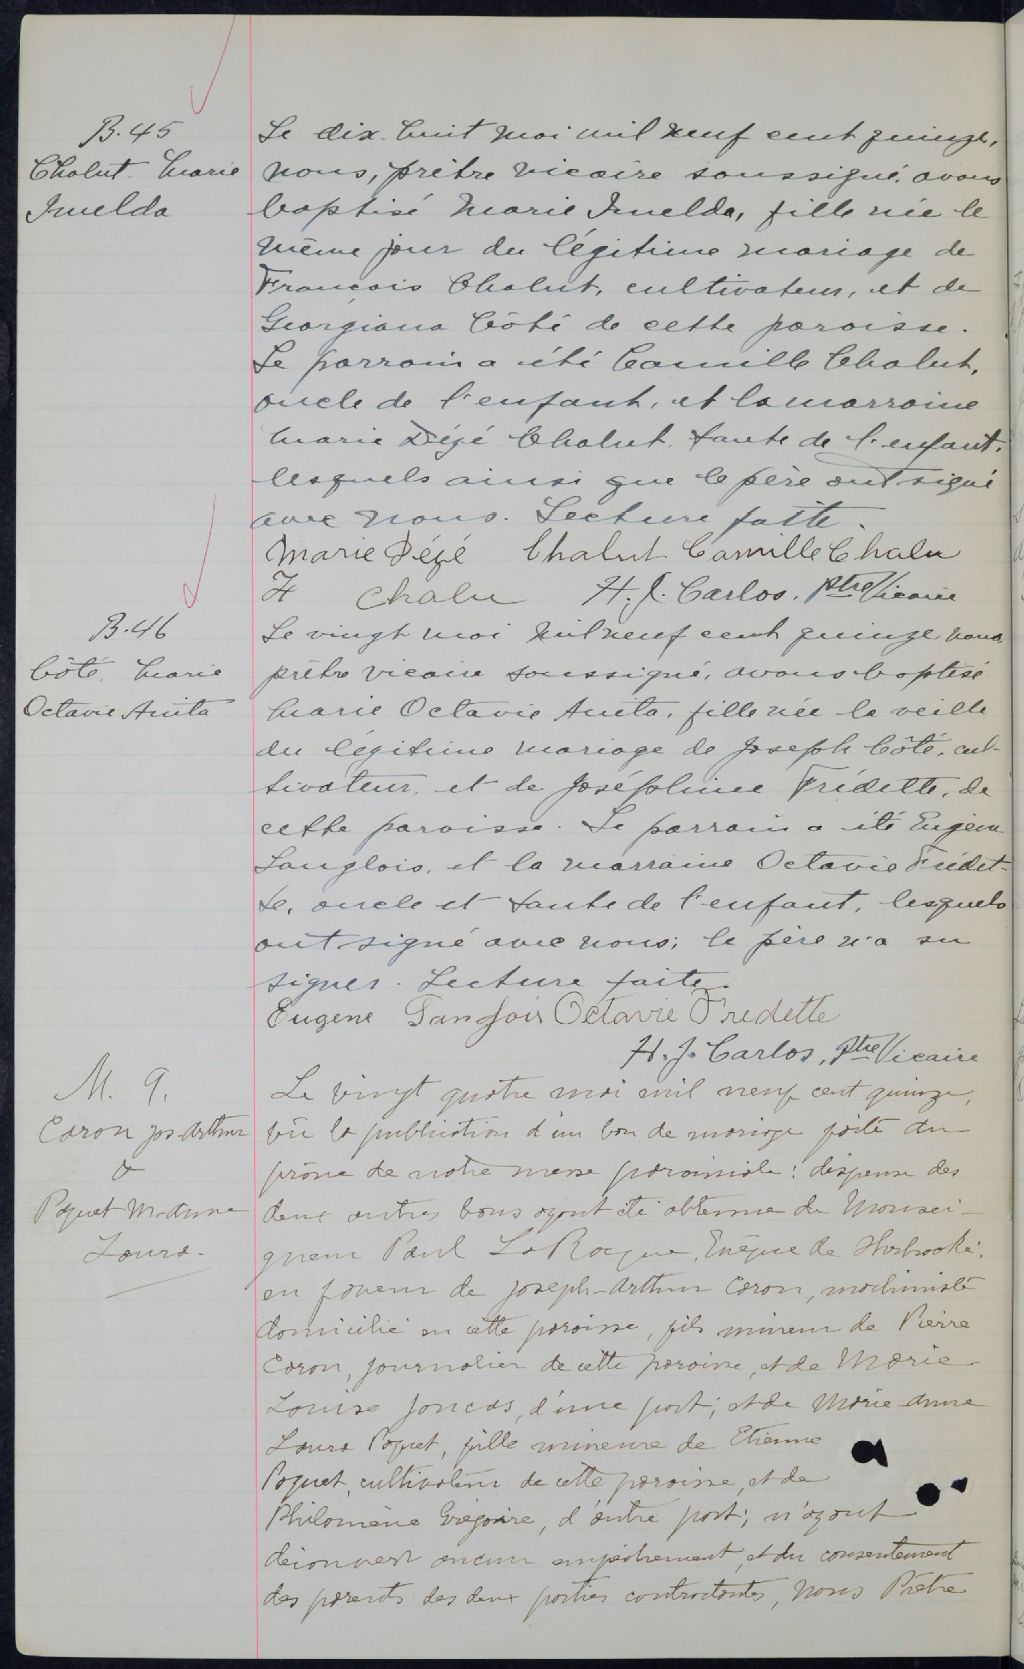 B. 45
Chalut. Marie
Imelda
Le dix-huit mai mil neuf cent quinze,
nous, prêtre vicaire soussigné, avons
baptisé Marie Imelda, fille née le
même jour du légitime mariage de
François Chalut, cultivateur, et de
Georgiana Côté de cette paroisse.
Le parrain a été Camille Chalut,
oncle de l'enfant, et la marraine
Marie Dézé Chalut, tante de l'enfant,
lesquels ainsi que le père ont signé
avec nous. Lecture faite.
Marie Dézé Chalut Camille Chalu
F Chalu H. J. Carlos, Ptre Vicaire
B. 46
Côté, Marie
Octavie Anita
Le vingt mai mil neuf cent quinze, nous
prêtre vicaire soussigné, avons baptisé
Marie Octavie Anita, fille née la veille
du légitime mariage de Joseph Côté, cul-
tivateur, et de Joséphine Frédette, de
cette paroisse. Le parrain a été Eugène
Langlois, et la marraine Octavie Frédet-
te, oncle et tante de l'enfant, lesquels
ont signé avec nous; le père n'a su
signer. Lecture faite.
Eugene Langlois Octavie Fredette
H. J. Carlos, Ptre Vicaire
M. 9.
Caron Jos-Arthur
&
Paquet M-Anne
Laura.
Le vingt quatre mai mil neuf cent quinze,
vu la publication d'un ban de mariage faite au
prône de notre messe paroissiale: dispense des
deux autres bans ayant été obtenue de Monsei-
gneur Paul LaRocque, Evêque de Sherbrooke,
en faveur de Joseph-Arthur Caron, machiniste
domicilié en cette paroisse, fils mineur de Pierre
Caron, journalier de cette paroisse, et de Marie-
Louise Joncas, d'une part; et de Marie-Anne
Laura Paquet, fille mineure de Etienne
Paquet, cultivateur de cette paroisse, et de
Philomène Grégoire, d'autre part; n'ayant
découvert aucun empêchement, et du consentement
des parents des deux parties contractantes, Nous Prêtre